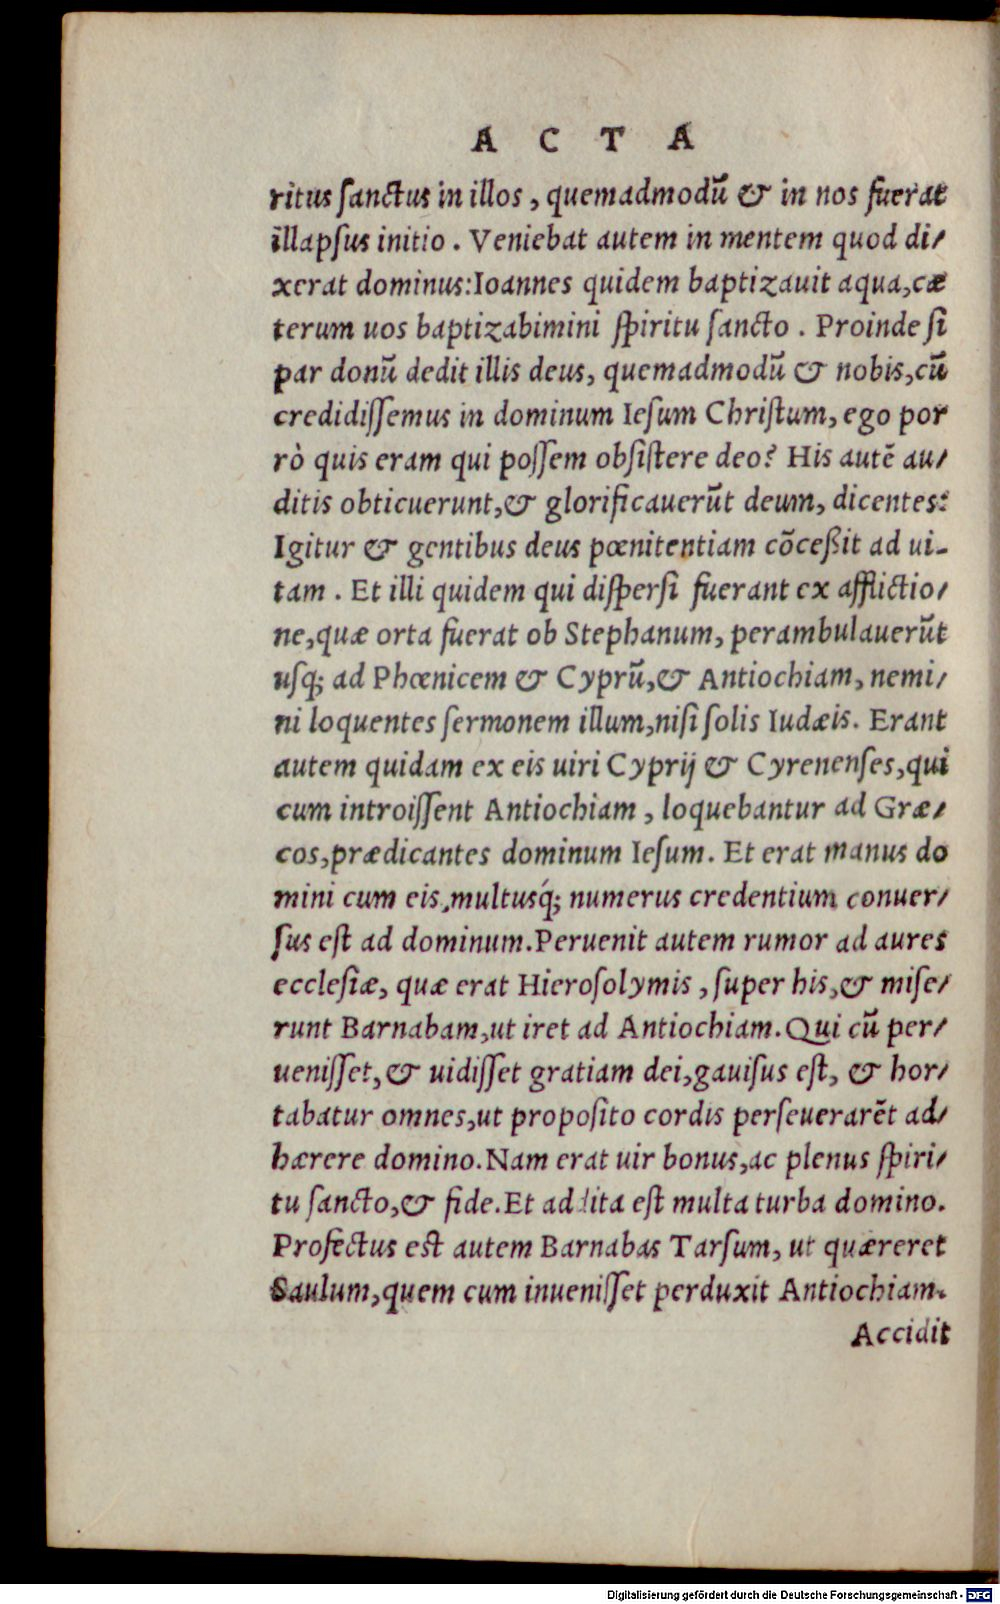 A C T A
ritus ſanctus in illos, quemadmodū & in nos fuerat
illapſus initio. Veniebat autem in mentem quod di/
xerat dominus: Ioannes quidem baptizauit aqua, cæ
terum uos baptizabimini ſpiritu ſancto. Proinde ſi
par donū dedit illis deus, quemadmodū & nobis, cū
credidiſſemus in dominum Ieſum Chriſtum, ego por
rò quis eram qui poſſem obſiſtere deo? His autē au/
ditis obticuerunt, & glorificauerūt deum, dicentes:
Igitur & gentibus deus pœnitentiam cōceßit ad ui-
tam. Et illi quidem qui diſperſi fuerant ex afflictio/
ne, quæ orta fuerat ob Stephanum, perambulauerūt
uſq; ad Phœnicem & Cyprū, & Antiochiam, nemi/
ni loquentes ſermonem illum, niſi ſolis Iudæis. Erant
autem quidam ex eis uiri Cyprij & Cyrenenſes, qui
cum introiſſent Antiochiam, loquebantur ad Græ/
cos, prædicantes dominum Ieſum. Et erat manus do
mini cum eis, multusq́; numerus credentium conuer/
ſus eſt ad dominum. Peruenit autem rumor ad aures
eccleſiæ, quæ erat Hieroſolymis, ſuper his, & miſe/
runt Barnabam, ut iret ad Antiochiam. Qui cū per/
ueniſſet, & uidiſſet gratiam dei, gauiſus eſt, & hor/
tabatur omnes, ut propoſito cordis perſeuerarēt ad/
hærere domino. Nam erat uir bonus, ac plenus ſpiri/
tu ſancto, & fide. Et addita eſt multa turba domino.
Profectus eſt autem Barnabas Tarſum, ut quæreret
Saulum, quem cum inueniſſet perduxit Antiochiam.
Accidit
Digitalisierung gefördert durch die Deutsche Forschungsgemeinschaft - DFG